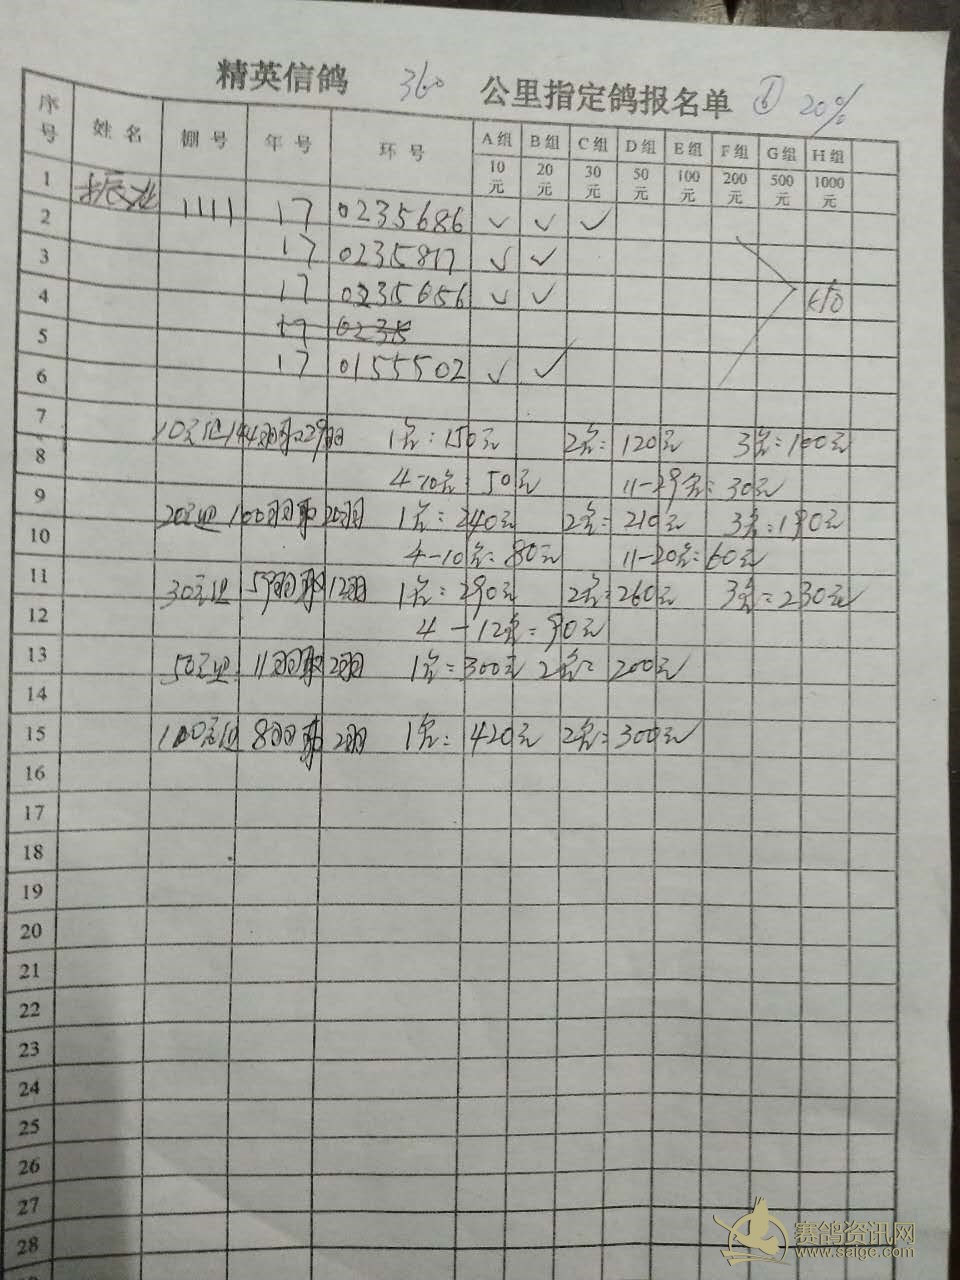 精英信鸽 360 公里指定鸽报名单 ⑥ 20%
序号 姓名 棚号 年号 环号 A组 B组 C组 D组 E组 F组 G组 H组
10元 20元 30元 50元 100元 200元 500元 1000元
1 振业
2 1111 17 0235686 ✓ ✓ ✓
3 17 0235817 ✓ ✓
4 17 0235656 ✓ ✓
5 17 0235
6 17 0155502 ✓ ✓
7 10元组144羽取29羽 1名:150元 2名:120元 3名:100元
8 4-10名: 50元 11-29名:30元
9 20元组100羽取20羽 1名:240元 2名:210元 3名:190元
10 4-10名:80元 11-20名:60元
11 30元组 59羽取12羽 1名:290元 2名:260元 3名:230元
12 4-12名:90元
13 50元组 11羽取2羽 1名:300元 2名: 200元
14
15 100元组 8羽取2羽 1名: 420元 2名:300元
16
17
18
19
20
21
22
23
24
25
26
27
28
赛鸽资讯网
www.saige.com